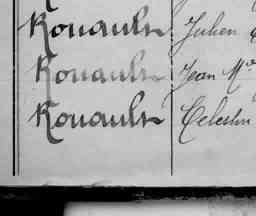 Rouault Julien
Rouault Jean M
Rouault Celestin